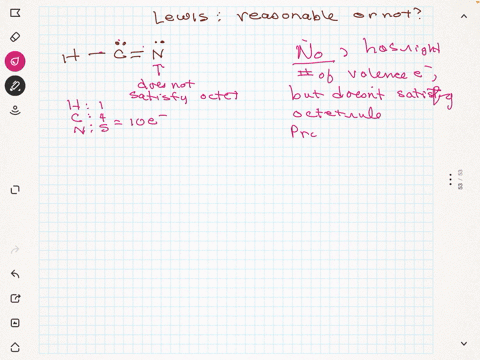 Lewis: reasonable or not?
H - C = N
does not
satisfy octet
H: 1
C: 4
N: 5 = 10e⁻
No, has right
# of valence e⁻,
but doesn't satisfy
octet rule
Pro
53 / 53